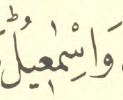 وَاِسْمٰعِيْلُ ؕ